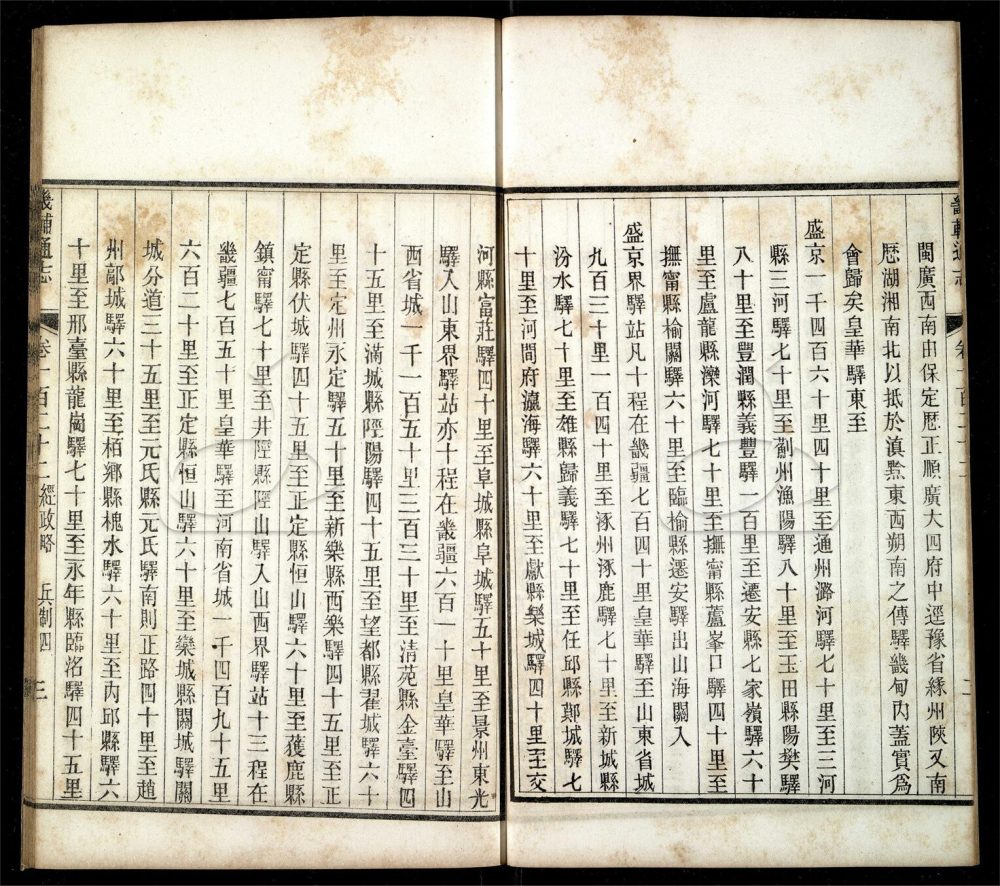 閩廣西南由保定厯正順廣大四府中逕豫省綠州陝又南
厯湖湘南北以抵於滇黔東西朔南之傳驛畿甸內蓋實爲
會歸矣皇華驛東至
盛京一千四百六十里四十里至通州潞河驛七十里至三河
縣三河驛七十里至薊州漁陽驛八十里至玉田縣陽樊驛
八十里至豐潤縣義豐驛一百里至遷安縣七家嶺驛六十
里至盧龍縣灤河驛七十里至撫甯縣蘆峯口驛四十里至
撫甯縣榆關驛六十里至臨榆縣遷安驛出山海關入
盛京界驛站凡十程在畿疆七百四十里皇華驛至山東省城
九百三十里一百四十里至涿州涿鹿驛七十里至新城縣
汾水驛七十里至雄縣歸義驛七十里至任邱縣鄚城驛七
十里至河間府瀛海驛六十里至獻縣樂城驛四十里至交
河縣富莊驛四十里至阜城縣阜城驛五十里至景州東光
驛入山東界驛站亦十程在畿疆六百一十里皇華驛至山
西省城一千一百五十里三百三十里至清苑縣金臺驛四
十五里至滿城縣陘陽驛四十五里至望都縣翟城驛六十
里至定州永定驛五十里至新樂縣西樂驛四十五里至正
定縣伏城驛四十五里至正定縣恒山驛六十里至獲鹿縣
鎮甯驛七十里至井陘縣陘山驛入山西界驛站十三程在
畿疆七百五十里皇華驛至河南省城一千四百九十五里
六百二十里至正定縣恒山驛六十里至欒城縣關城驛關
城分道三十五里至元氏縣元氏驛南則正路四十里至趙
州鄗城驛六十里至栢鄉縣槐水驛六十里至內邱縣驛六
十里至邢臺縣龍崗驛七十里至永年縣臨洺驛四十五里
畿輔通志 卷一百二十二 經政略 兵制四 三